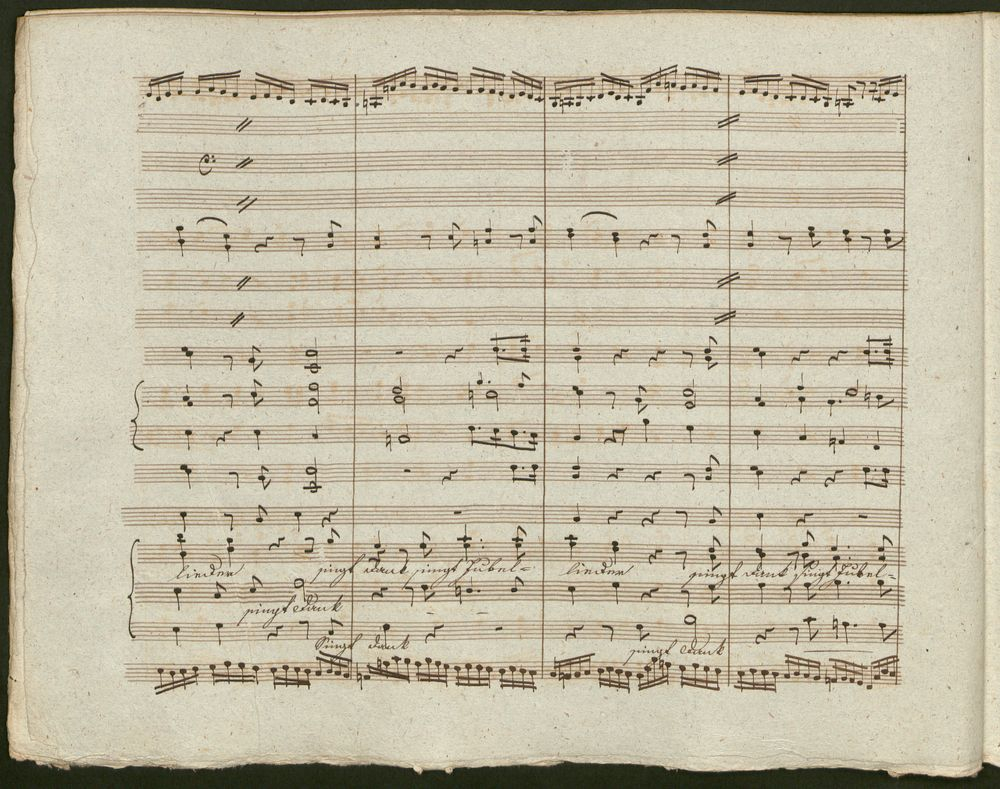 lieder singt dank singt Jubel= lieder singt dank singt Jubel=
singt dank
Singt dank singt dank